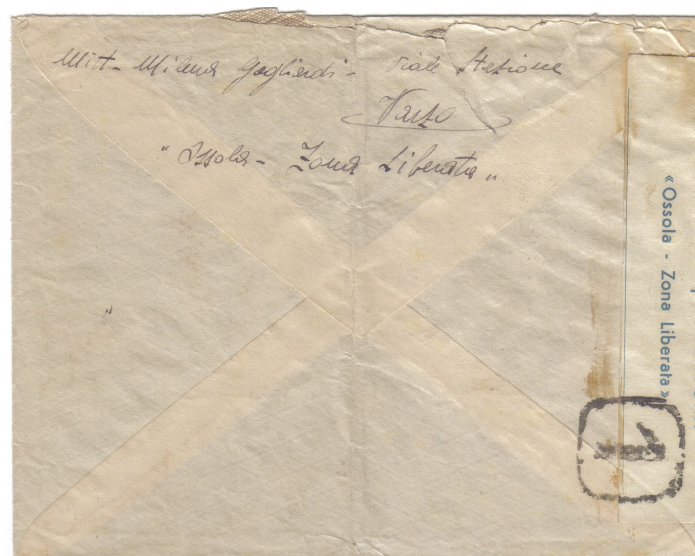 Mitt- Milena Gagliardi - Viale Stazione
Varzo
"Ossola - Zona Liberata"
«Ossola - Zona Liberata»
1